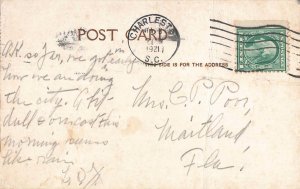 POST CARD
CHARLESTON
1921
S.C.
THIS SIDE IS FOR THE ADDRESS
O.K. so far, we got in
here we are doing
the city. A bit
dull & overcast this
morning seems
like rain
Mrs. C. P. Poor,
Maitland
Fla.